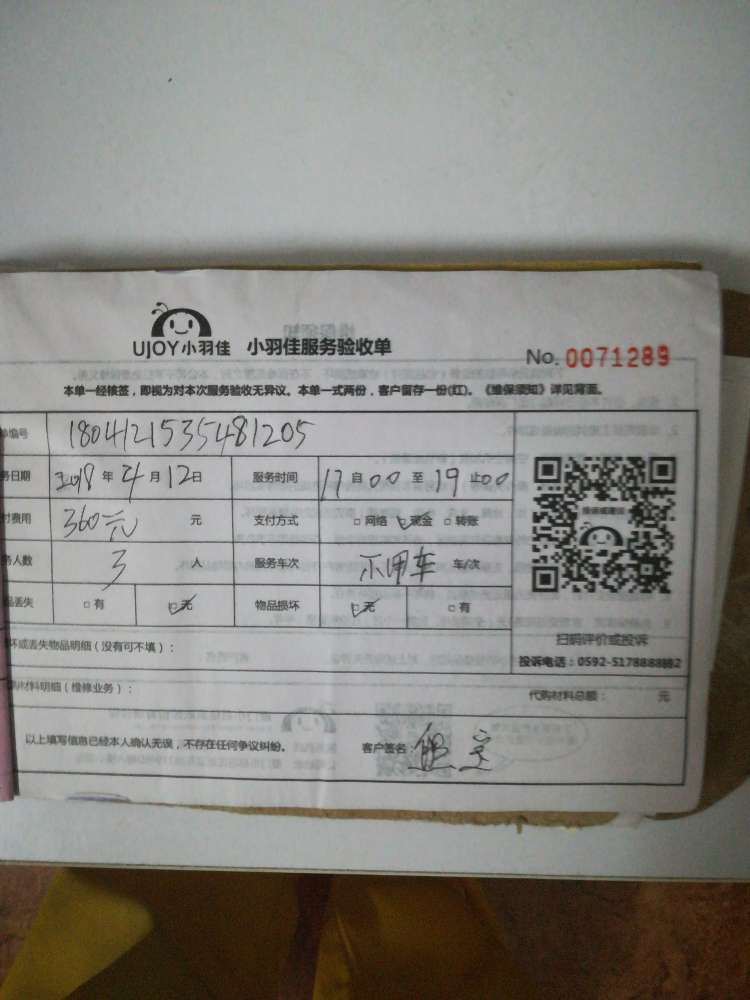 UJOY小羽佳 小羽佳服务验收单 No. 0071289
本单一经核签，即视为对本次服务验收无异议。本单一式两份，客户留存一份(红)。《维保须知》详见背面。
单编号 1804121535481205
务日期 2018 年 4 月 12 日 服务时间 17 自 00 至 19 止 00
付费用 360元 元 支付方式 □网络 ☑现金 □转账
务人数 3 人 服务车次 不用车 车/次
品丢失 □有 ☑无 物品损坏 ☑无 □有
扫码评价或投诉
坏或丢失物品明细（没有可不填）：
投诉电话：0592-5178888转2
材料明细（维修业务）： 代购材料总额： 元
以上填写信息已经本人确认无误，不存在任何争议纠纷。 客户签名：